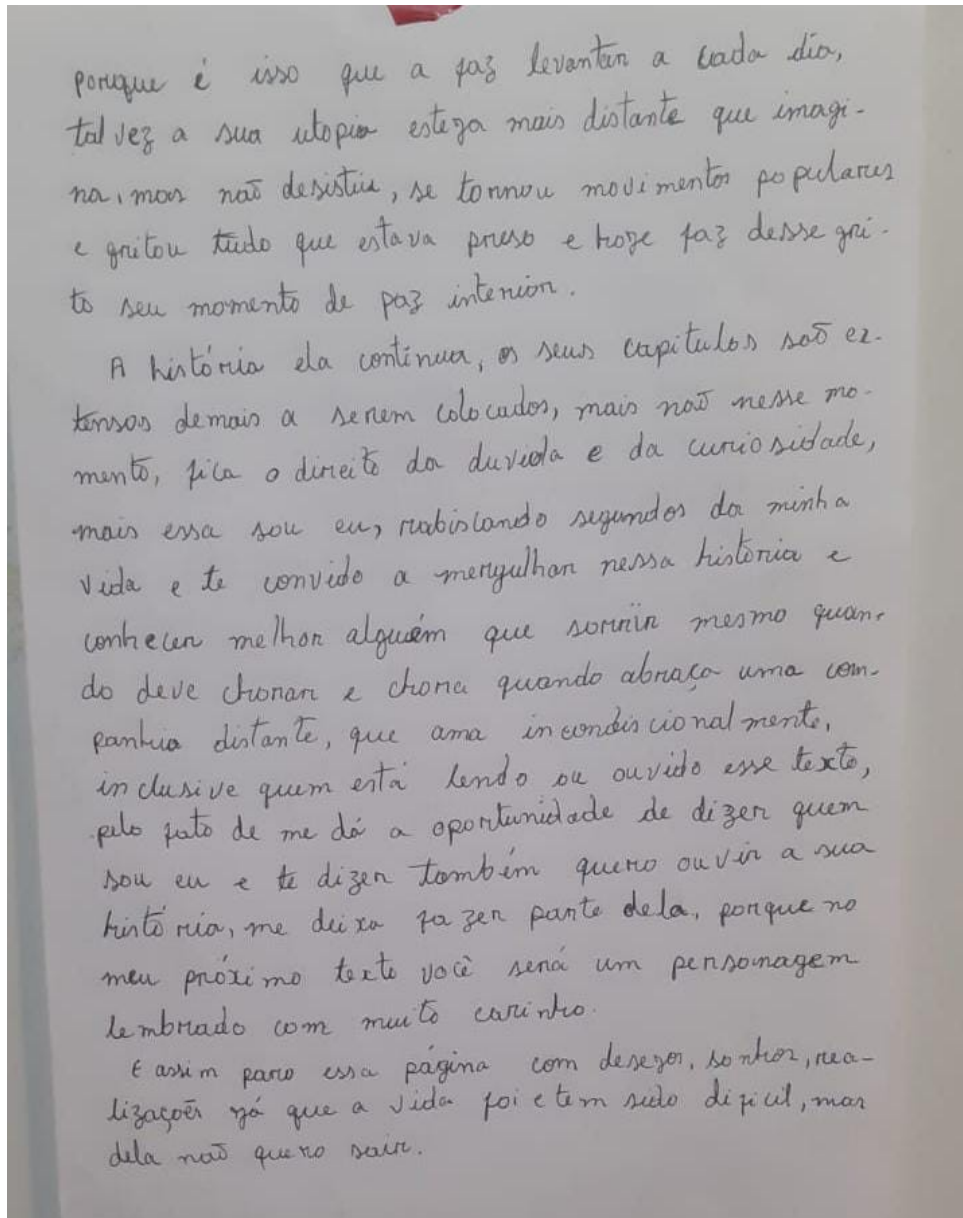 porque é isso que a faz levantar a cada dia,
talvez a sua utopia esteja mais distante que imagi-
na, mas não desistiu, se tornou movimentos populares
e gritou tudo que estava preso e hoje faz desse gri-
to seu momento de paz interior.
A história ela continua, os seus capitulos são ex-
tensos demais a serem colocados, mais não nesse mo-
mento, fica o direito da duvida e da curiosidade,
mais essa sou eu, rabiscando segundos da minha
vida e te convido a mergulhar nessa história e
conhecer melhor alguém que sorrir mesmo quan-
do deve chorar e chora quando abraça uma com-
panhia distante, que ama incondiscionalmente,
inclusive quem está lendo ou ouvido esse texto,
pelo fato de me dá a oportunidade de dizer quem
sou eu e te dizer também quero ouvir a sua
história, me deixa fazer parte dela, porque no
meu próximo texto você será um personagem
lembrado com muito carinho.
E assim paro essa página com desejos, sonhos, rea-
lizações já que a vida foi e tem sido dificil, mas
dela não quero sair.